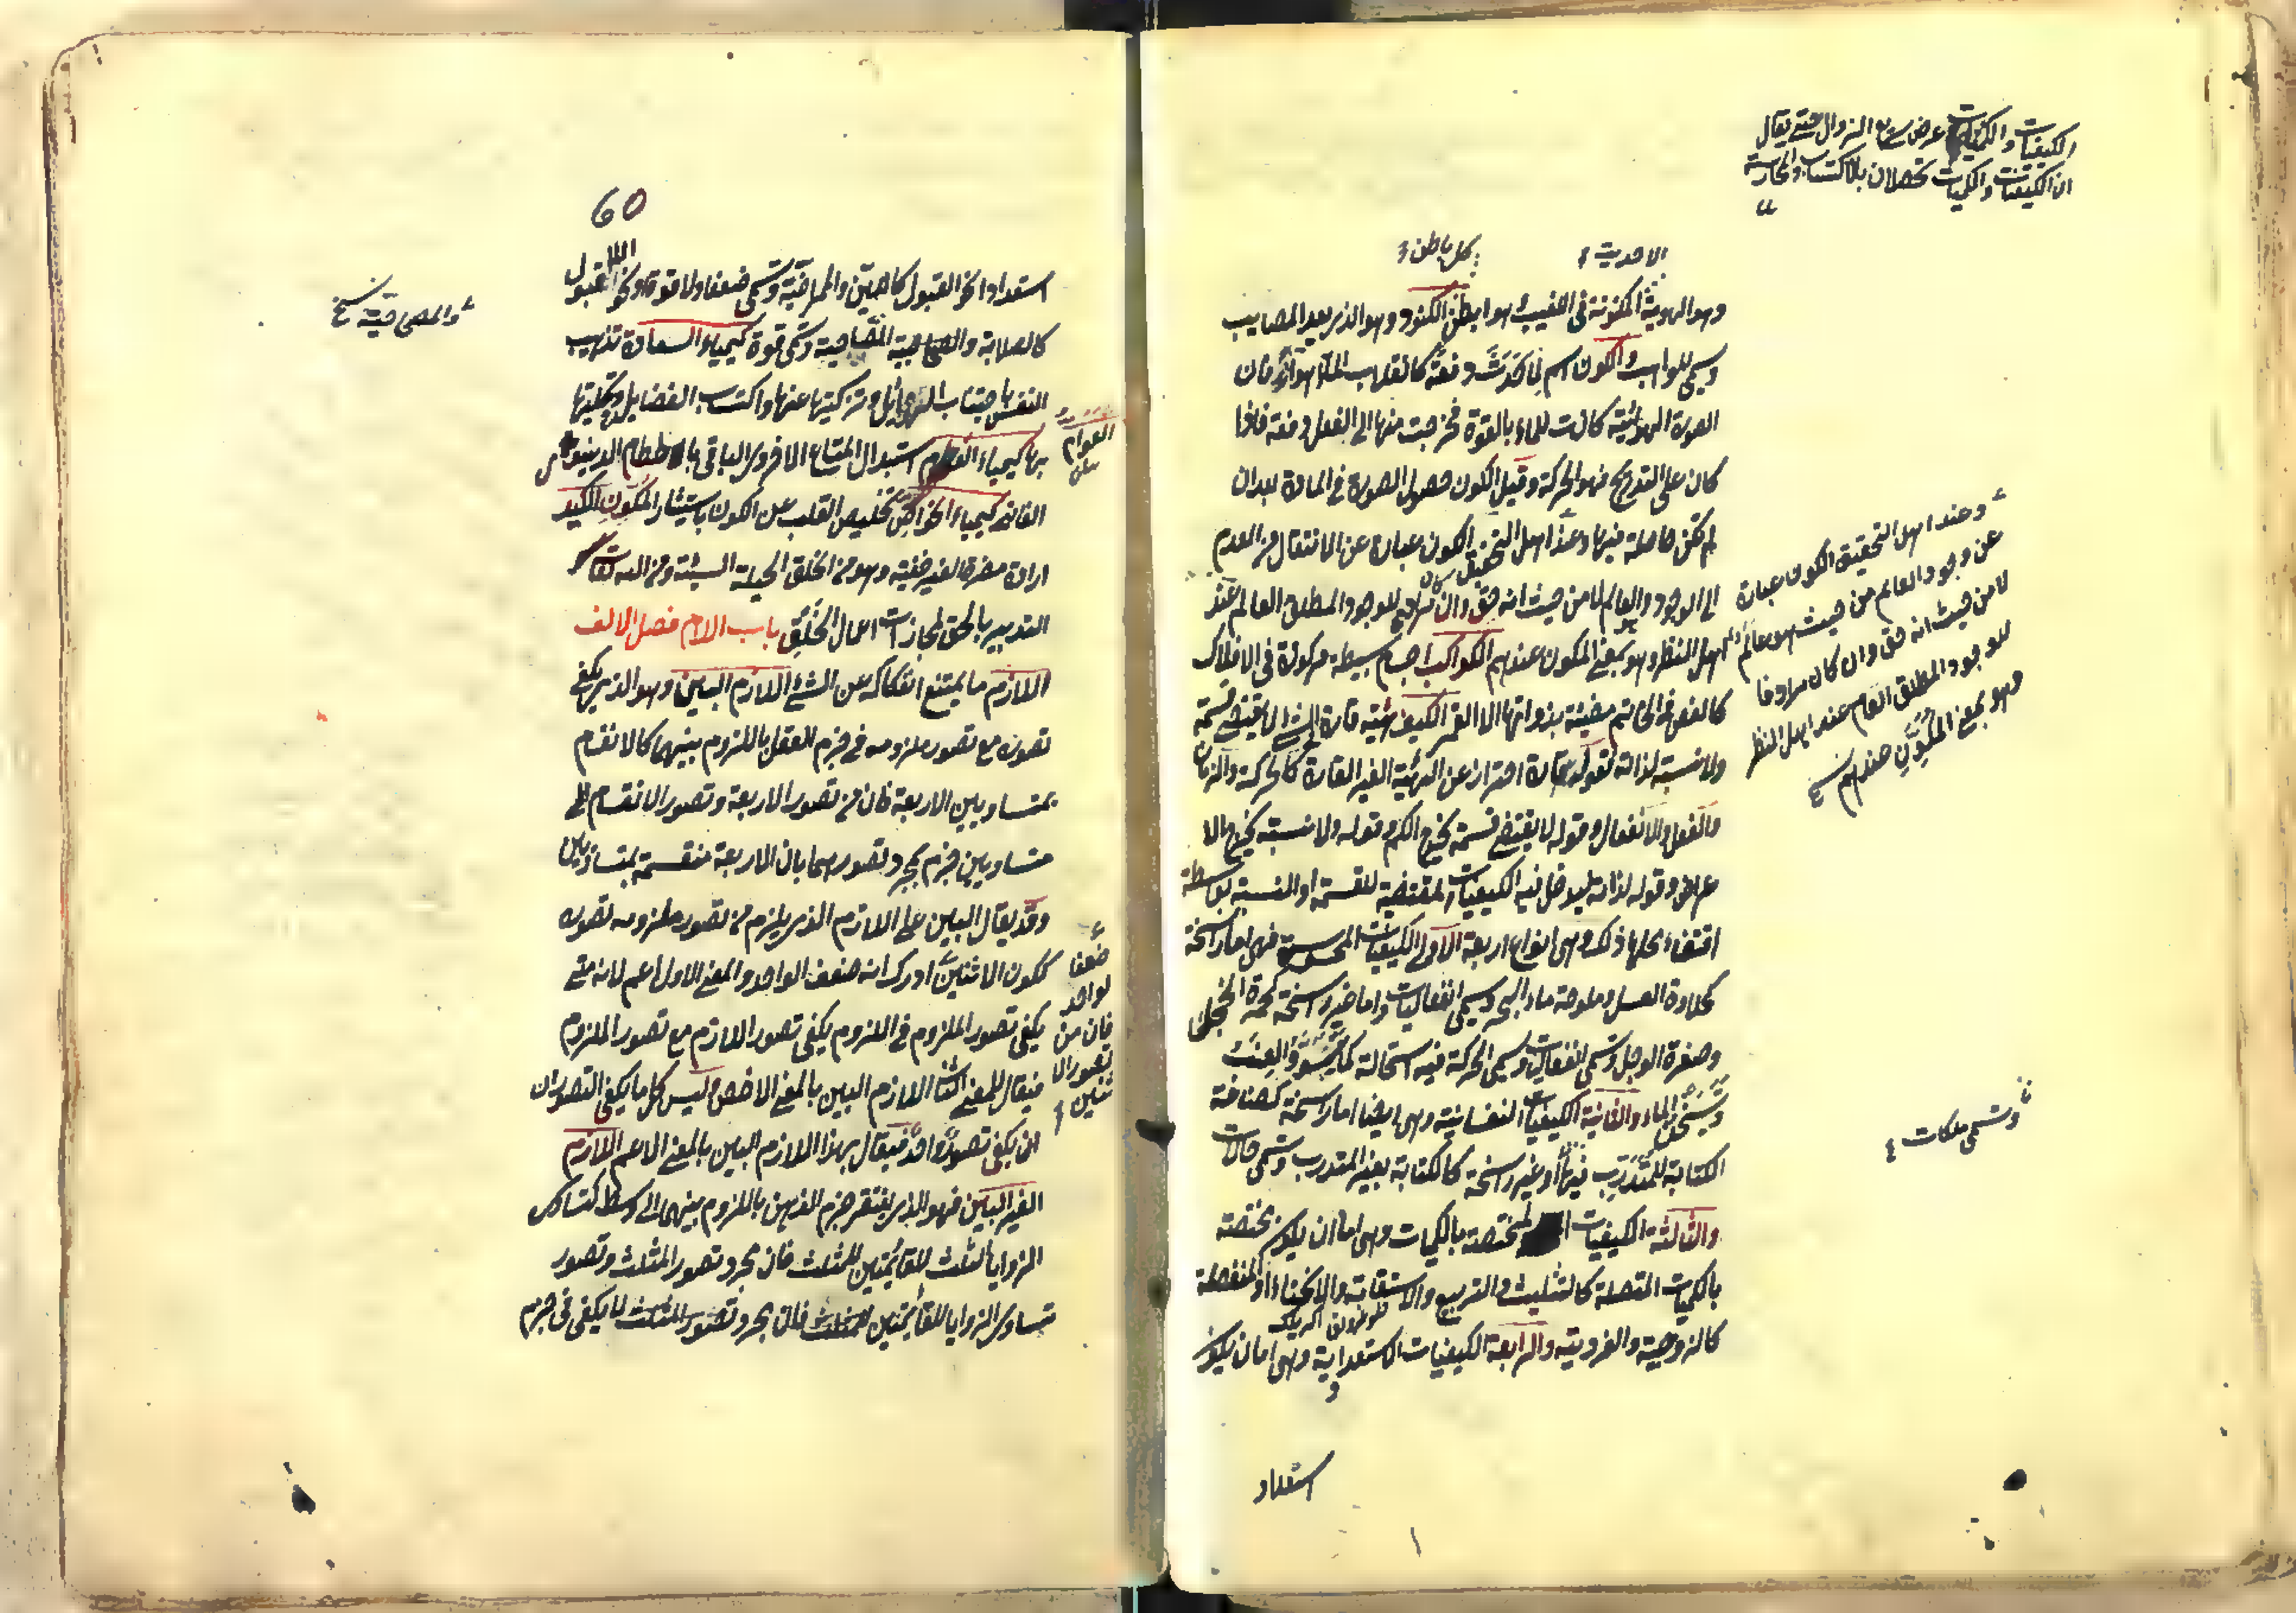 الكيفيات والكميات عرض سريع الزوال حتى يقال
ان الكيفيات والكميات تحصلان بالاكتساب والمحارسة
الاحدية
كل باطن
وهو الهوية المكنونة فى الغيب هو ابطن الكنود وهو الذى يعد المصايب
وينسى المواهب الكون اسم لما حدث دفعة كانقلاب الماء هواء فان
الصورة الهوائية كانت للماء بالقوة فخرجت منها الى الفعل دفعة فاذا
كان على التدريج فهو الحركة وقيل الكون حصول الصورة فى المادة بعد ان
لم تكن حاصلة فيها وعند اهل التحقيق الكون عبارة عن الانتقال من العدم
الى الوجود والعالم لا من حيث انه حق وان كان مرادفا للوجود المطلق العالم عند
اهل النظر وهو بمعنى المكون عندهم الكواكب اجسام بسيطة مركوزة فى الافلاك
كالفص فى الخاتم مضيئة بذواتها الا القمر الكيف هيئة قارة فى الشئ لا يقتضى قسمة
ولا نسبة لذاته فقوله قارة احتراز عن الهيئة الغير القارة كالحركة والزمان
والفعل والانفعال وقوله لا يقتضى قسمة يخرج الكم وقوله ولا نسبة يخرج الا
عراض وقوله لذاته ليدخل فيه الكيفيات المقتضية للقسمة او النسبة بواسطة
اقتضاء محلها ذلك وهى انواع اربعة الاولى الكيفيات المحسوسة فهى اما راسخة
كحلاوة العسل وملوحة ماء البحر ويسمى انفعاليات واما غير راسخة كحمرة الخجل
وصفرة الوجل وتسمى انفعالات ويسمى الحركة فيه استحالة كما يتسود العنب
ويتسخن الماء والثانية الكيفيات النفسانية وهى ايضا اما راسخة كصناعة
الكتابة للمتدرب فيها او غير راسخة كالكتابة بغير المتدرب وتسمى حالات
والثالثة الكيفيات المختصة بالكميات وهى اما ان يكون مختصة
بالكميات المتصلة كالتثليث والتربيع والاستقامة والانحناء او المنفصلة
كالزوجية والفردية والرابعة الكيفيات الاستعدادية وهى اما ان يكون
استعداد
وعند اهل التحقيق الكون عبارة
عن وجود العالم من حيث هو عالم
لا من حيث انه حق وان كان مرادفا
للوجود المطلق العام عند اهل النظر
وهو بمعنى المكون عندهم
وتسمى ملكات
60
استعدادا نحو القبول كاللين والممراضية وتسمى ضعفا ولا قوة او نحو اللاقبول
كالصلابة والمصحاحية وتسمى قوة كيمياء السعادة تهذيب
النفس باجتناب الرذايل وتزكيتها عنها واكتساب الفضايل وتحليتها
بها كيمياء العوام استبدال المتاع الاخروى الباقى بالحطام الدنيوى
الفانى كيمياء الخواص تخليص القلب عن الكون باستيثار المكون الكيد
ارادة مضرة الغير خفية وهو من الخلق الحيلة السيئة ومن الله تعالى
التدبير بالحق لمجازات اعمال الخلق باب اللام فصل الالف
اللازم ما يمتنع انفكاكه عن الشئ اللازم البين وهو الذى يكفى
تصوره مع تصور ملزومه فى جزم العقل باللزوم بينهما كالانقسام
بمتساويين للاربعة فان من تصور الاربعة وتصور الانقسام الى
متساويين جزم بمجرد تصورهما بان الاربعة منقسمة بمتساويين
وقد يقال البين على اللازم الذى يلزم من تصور ملزومه تصوره
ككون الاثنين ادرك انه ضعف الواحد والمعنى الاول اعم لانه متى
يكفى تصور الملزوم فى اللزوم يكفى تصور اللازم مع تصور الملزوم
فيقال للمعنى الثانى اللازم البين بالمعنى الاخص وليس كل ما يكفى التصوران
ان يكفى تصور واحد فيقال بهذا اللازم البين بالمعنى الاعم اللازم
الغير البين فهو الذى يفتقر جزم الذهن باللزوم بينهما الى وسط كتساوى
الزوايا الثلث للقائمتين للمثلث فان مجرد تصور المثلث وتصور
تساوى الزوايا للقائمتين للمثلث فان مجرد تصور المثلث لا يكفى فى جزم
والمصحاحية
العوام
ضعفا
لواحد
فان من
تصور الا
ثنين